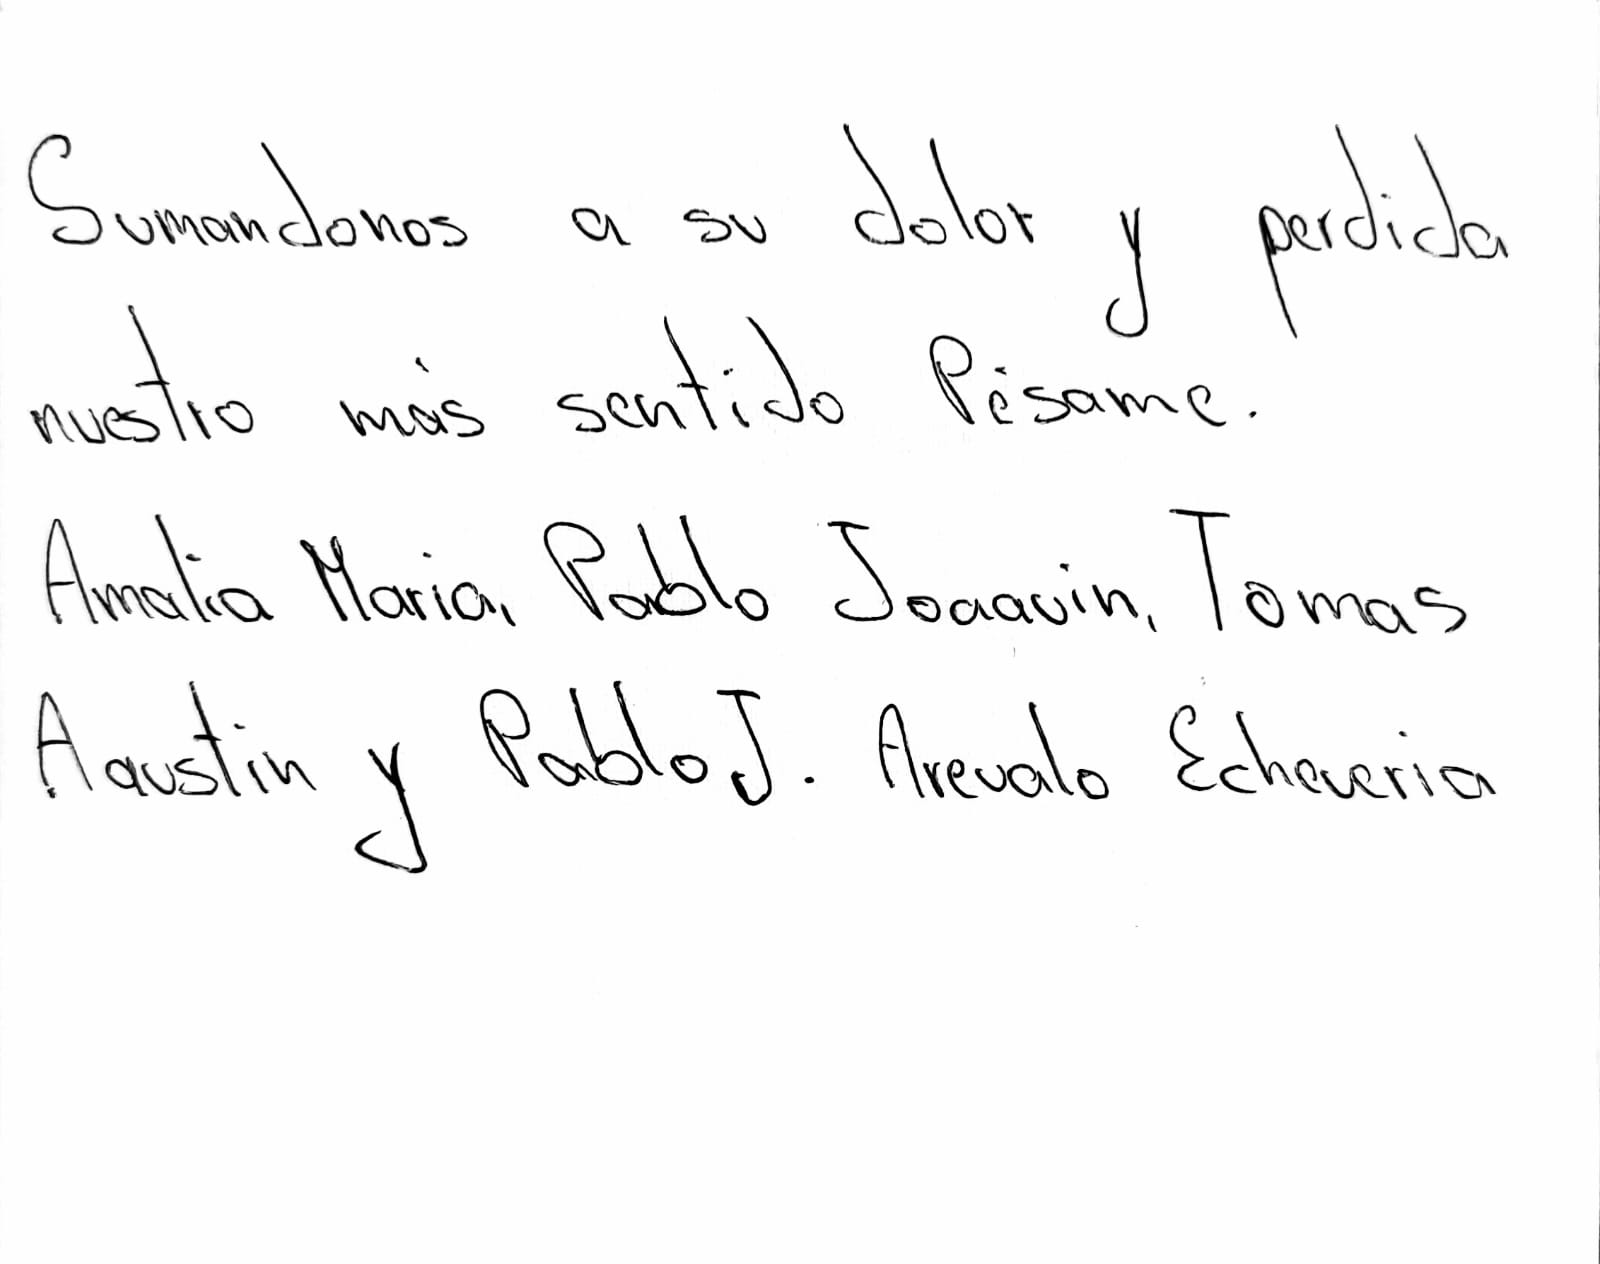 Sumandonos a su dolor y perdida
nuestro más sentido Pésame.
Amalia Maria, Pablo Joaquin, Tomas
Agustin y Pablo J. Arevalo Echeveria